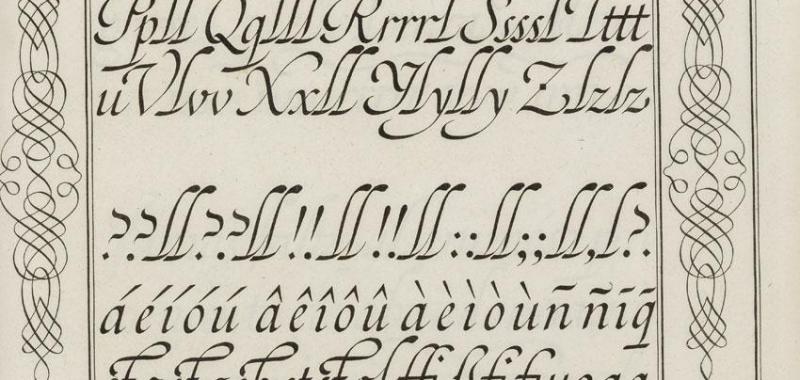 Ppll Qqlll Rrrrl Ssssl Tttt
uVlvv Xxll Ylylly Zlzlz
??ll??ll!!ll!!ll::ll;;ll,l?.
áéíóú âêîôû àèìòùñ ñīq̃